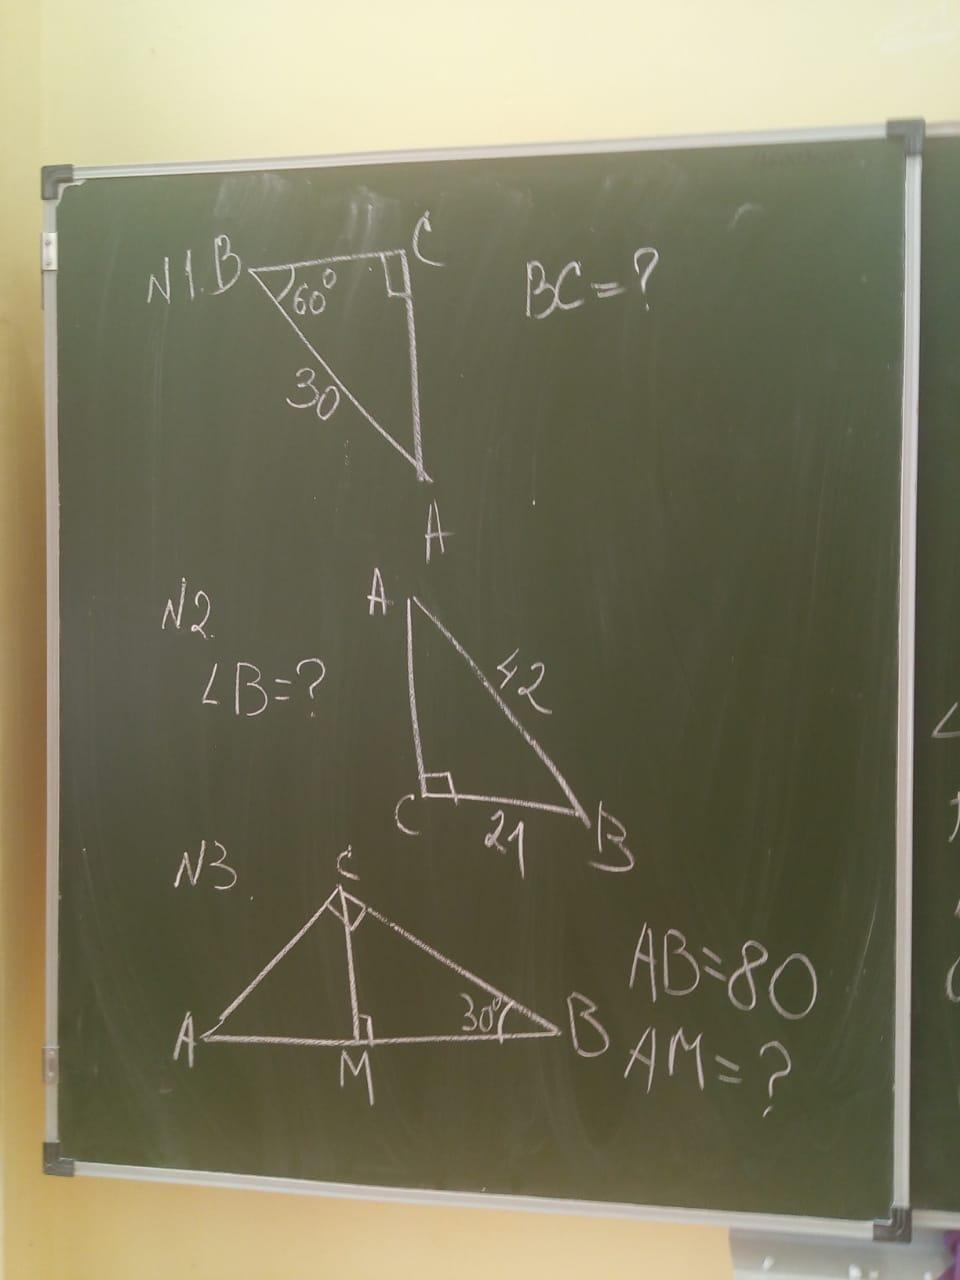 N1. B
C
60°
30
A
BC=?
N2.
∠B=?
A
42
C
21
B
N3.
C
A
M
30°
B
AB=80
AM=?